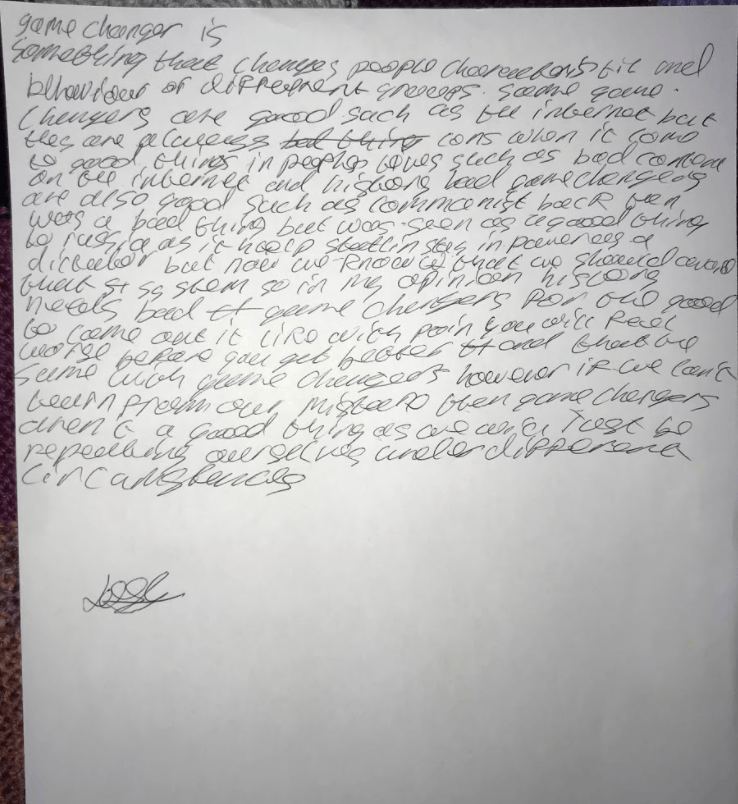 game changer is
something that changes people characteristic and
behaviour of different groups. some game.
changers are good such as the internet but
they are always bad thing cons when it come
to good things in peoples lives such as bad content
on the internet and history bad game changers
are also good such as communist back then
was a bad thing but was seen as a good thing
to russia as it help stay in power as a
dictator but now we know that we should avoid
that system so in my opinion history
needs bad game changers for the good
to come out it like with pain you will feel
worse before you get better and that the
same with game changers however if we can't
learn from our then game changers
aren't a good thing as we will just be
repeating ourselves under different
circumstances